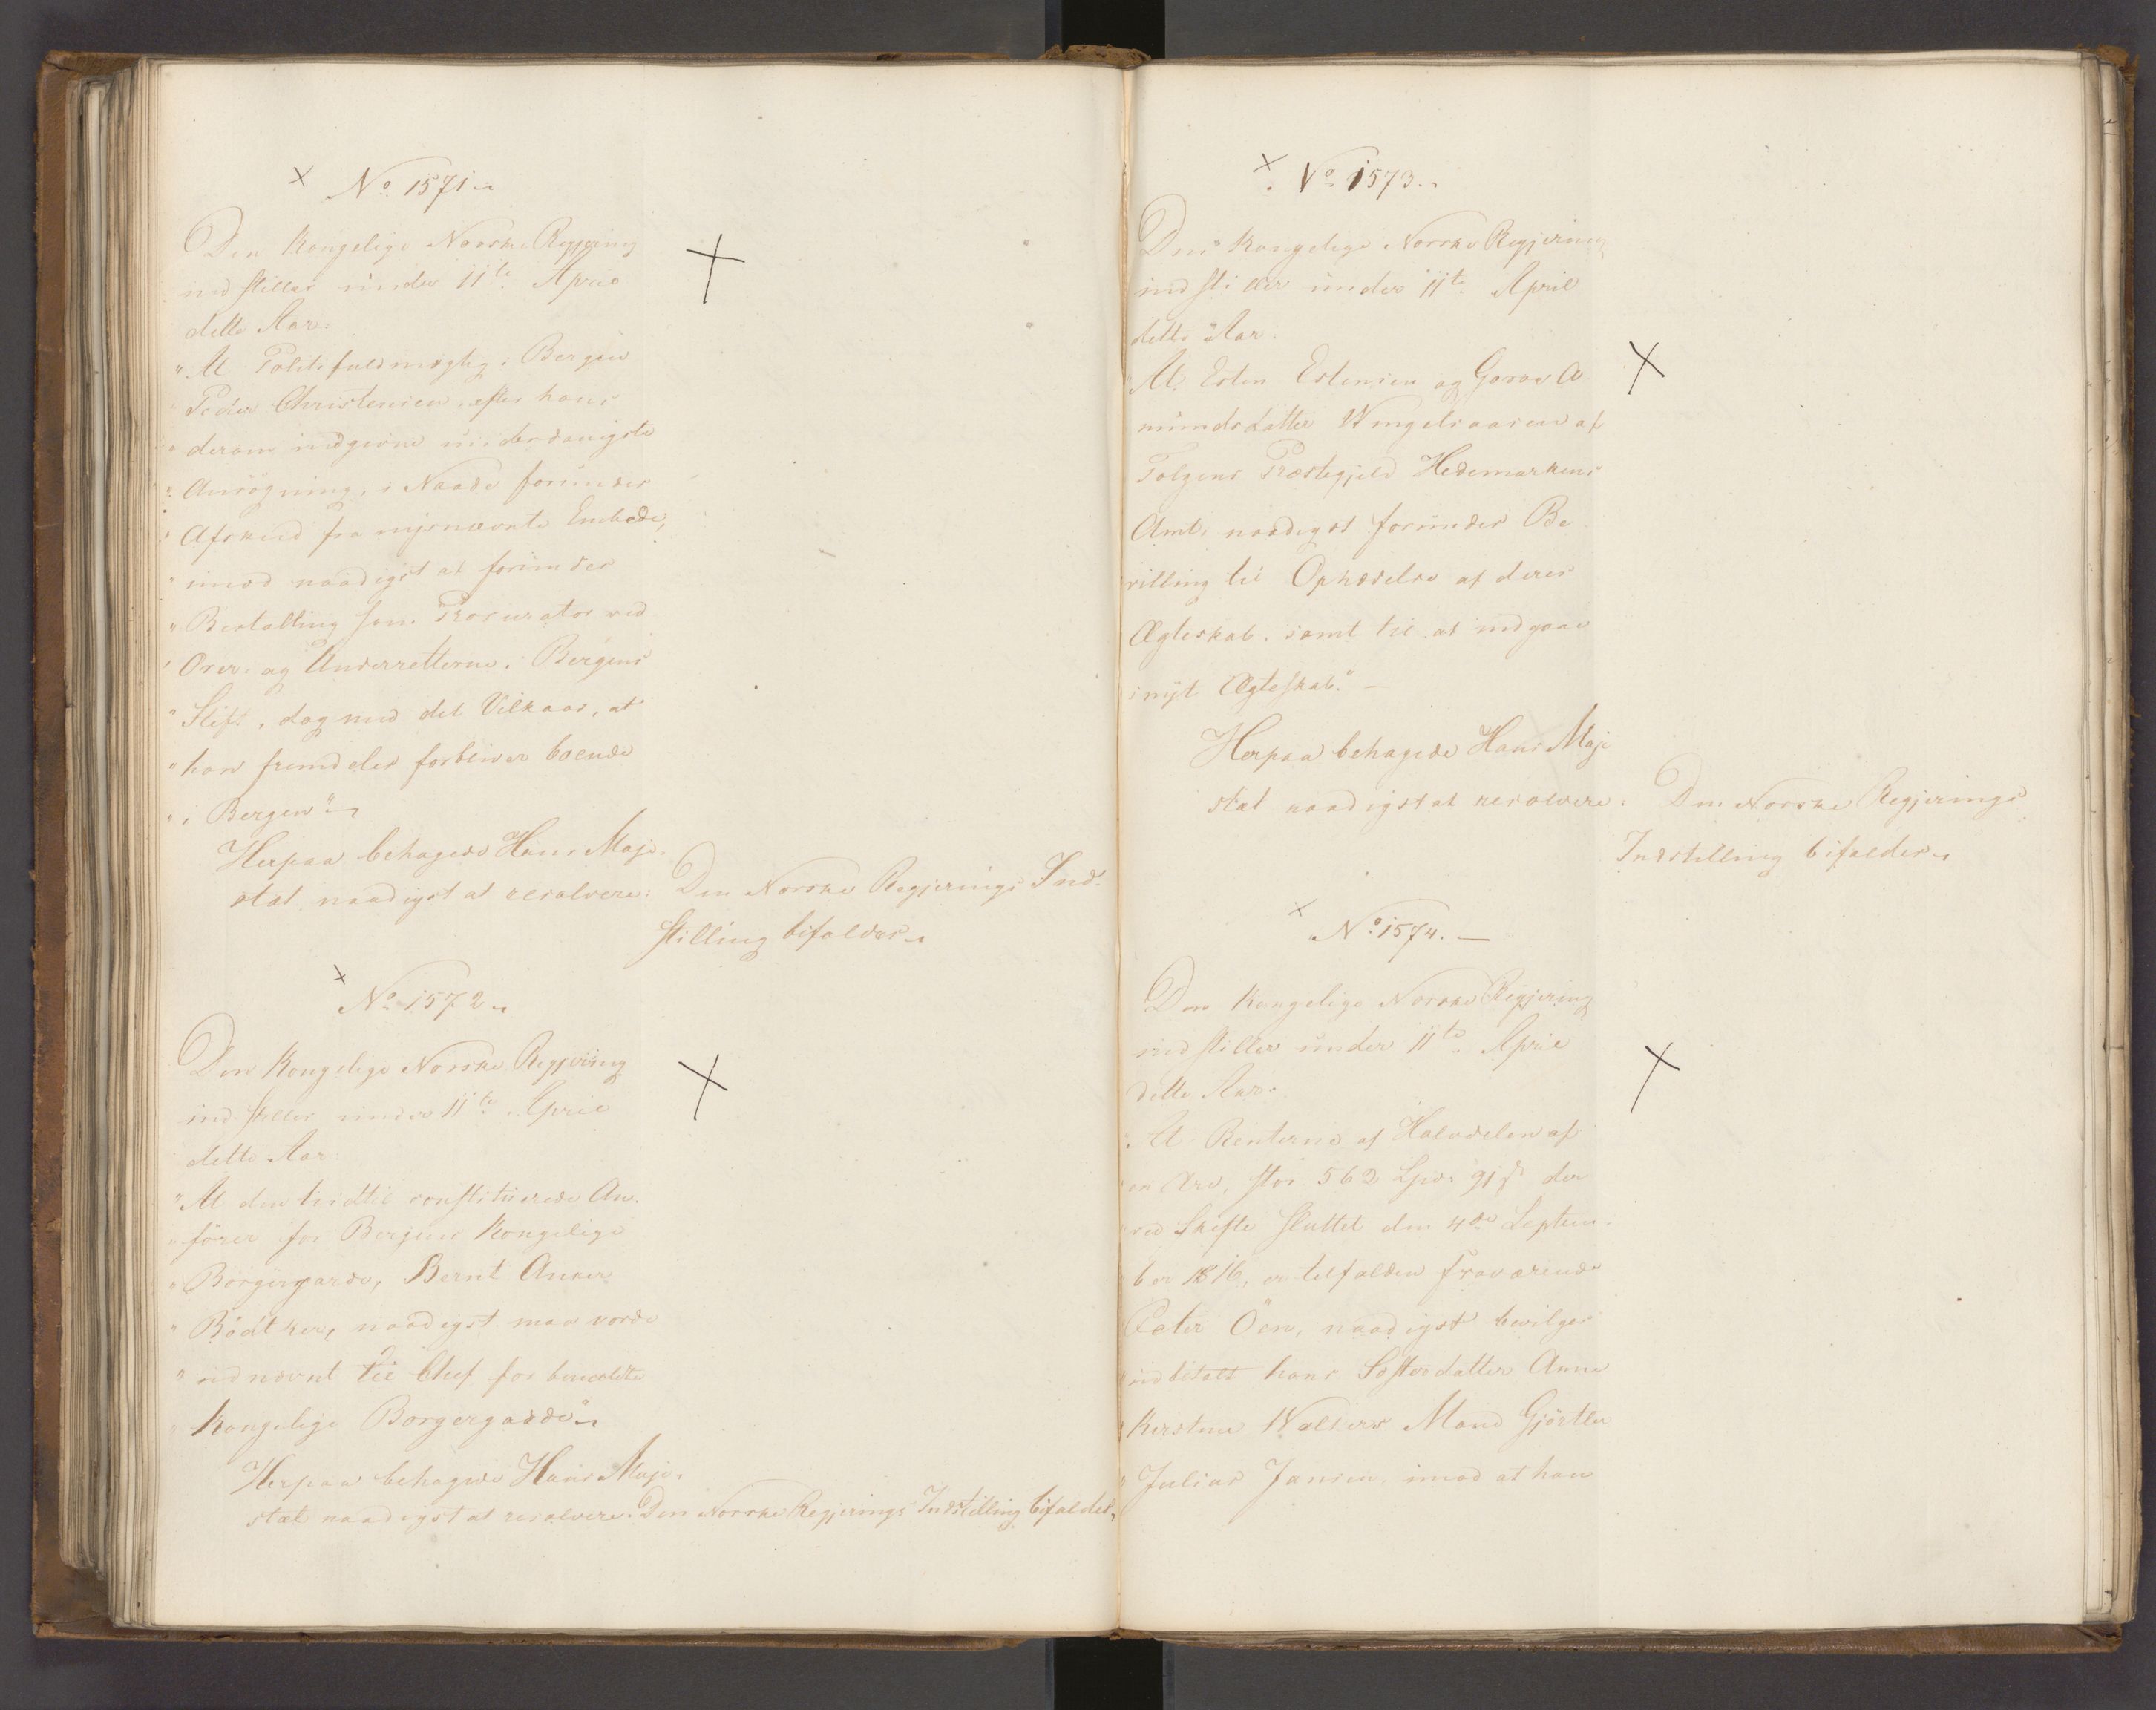 × No. 1571.
Den Kongelige Norske Regjering
indstiller under 11te April
dette Aar:
"At Politifuldmægtig i Bergen
Peder Christensen, efter hans
" derom indgivne underdanigste
" Ansøgning, i Naade forundes
" Afsked fra mjernævnte Embede,
" imod naadigst at forundes
" Bestalling som Procurator ved
" Over- og Underretterne i Bergens
" Stift, dog med det Vilkaar, at
" han fremdeles forbliver boende
" i Bergen"
Herpaa behagede Hans Maje-
stæt naadigst at resolvere: Den Norske Regjerings Ind-
stilling bifaldes.
× No. 1572.
Den Kongelige Norske Regjering
indstiller under 11te April
dette Aar:
"At den hidtil constituerede An-
" fører for Bergens Kongelige
" Borgergarde, Bernt Anker
" Bödtker, naadigst maa vorde
" udnævnt til Chef for bemeldte
" Kongelige Borgergarde"
Herpaa behagede Hans Maje-
stæt naadigst at resolvere: Den Norske Regjerings Indstilling bifaldes,
× No. 1573.
Den Kongelige Norske Regjering
indstiller under 11te April
dette Aar:
"At Esten Estensen og Goroe A
mundsdatter Wingelsaasen af
Tolgens Præstegjeld Hedemarkens
Amt, naadigst forundes Be
villing til Ophævelse af deres
Ægteskab, samt til at indgaae
nyt Ægteskab." —
Herpaa behagede Hans Maje
stæt naadigst at resolvere: Den Norske Regjerings
Indstilling bifaldes.
× No. 1574. —
Den Kongelige Norske Regjering
indstiller under 11te April
dette Aar:
"At Renterne af Halvdelen af
en Arv, stor 562 Spd. 91 ß der
ved Skifte sluttet den 4de Septem-
ber 1816, er tilfalden fraværende
Peter Öen, naadigst bevilges
udbetalt hans Søsterdatter Anne
Kirstine Wælsers Mand Gjörtler
" Julius Jansen, imod at han